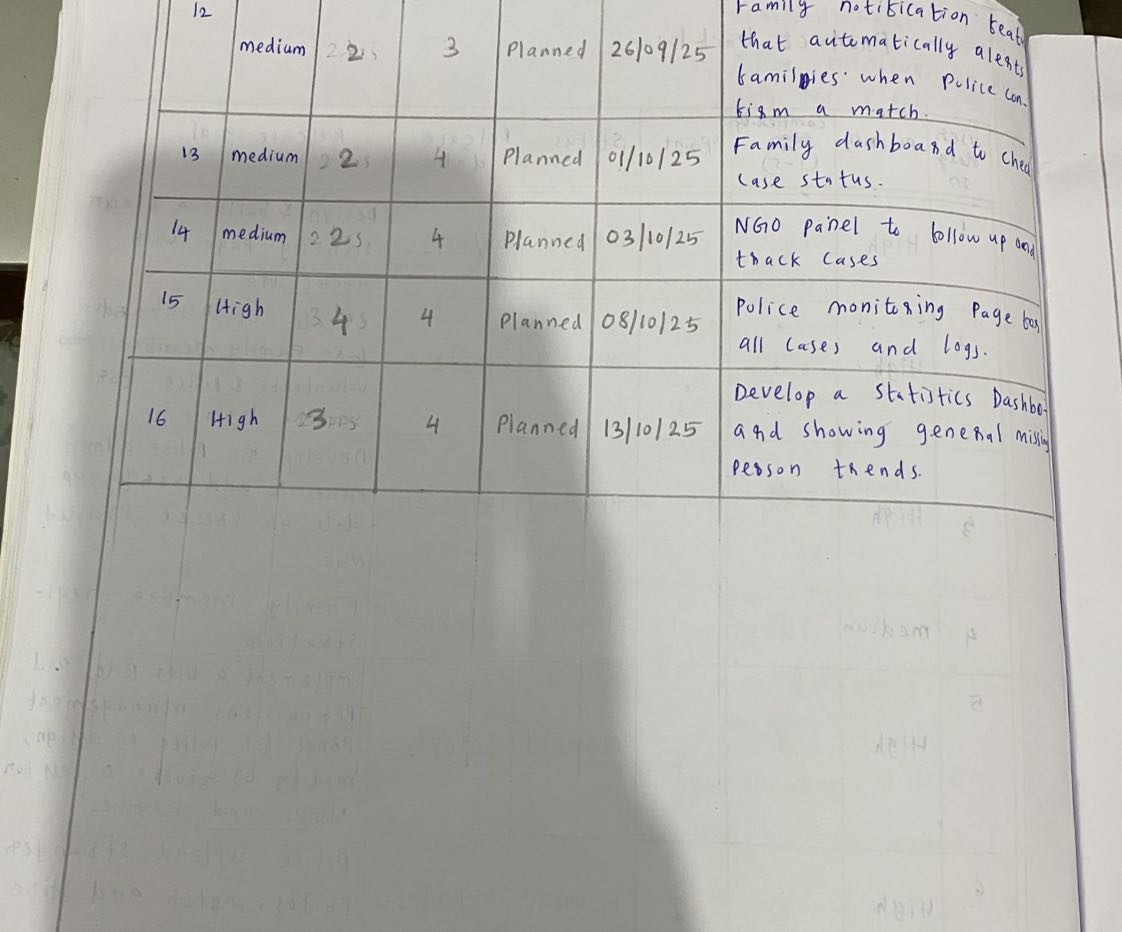 12
medium 2 3 Planned 26/09/25
Family notification featu
that automatically alerts
families when Police con-
firm a match.
13 medium 2 4 Planned 01/10/25
Family dashboard to chec
case status.
14 medium 2 4 Planned 03/10/25
NGO panel to follow up and
track cases
15 High 4 4 Planned 08/10/25
Police monitoring Page for
all cases and logs.
16 High 3 4 Planned 13/10/25
Develop a Statistics Dashbo-
ard showing general missing
person trends.